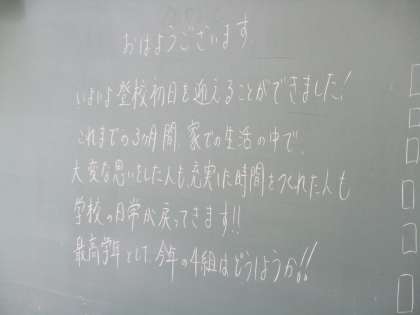 おはようございます。
いよいよ登校初日を迎えることができました!
これまでの3ヶ月間、家での生活の中で、
大変な思いをした人も、充実した時間をつくれた人も
学校の日常が戻ってきます!!
最高学年として、今年の4組はどうしようか!!